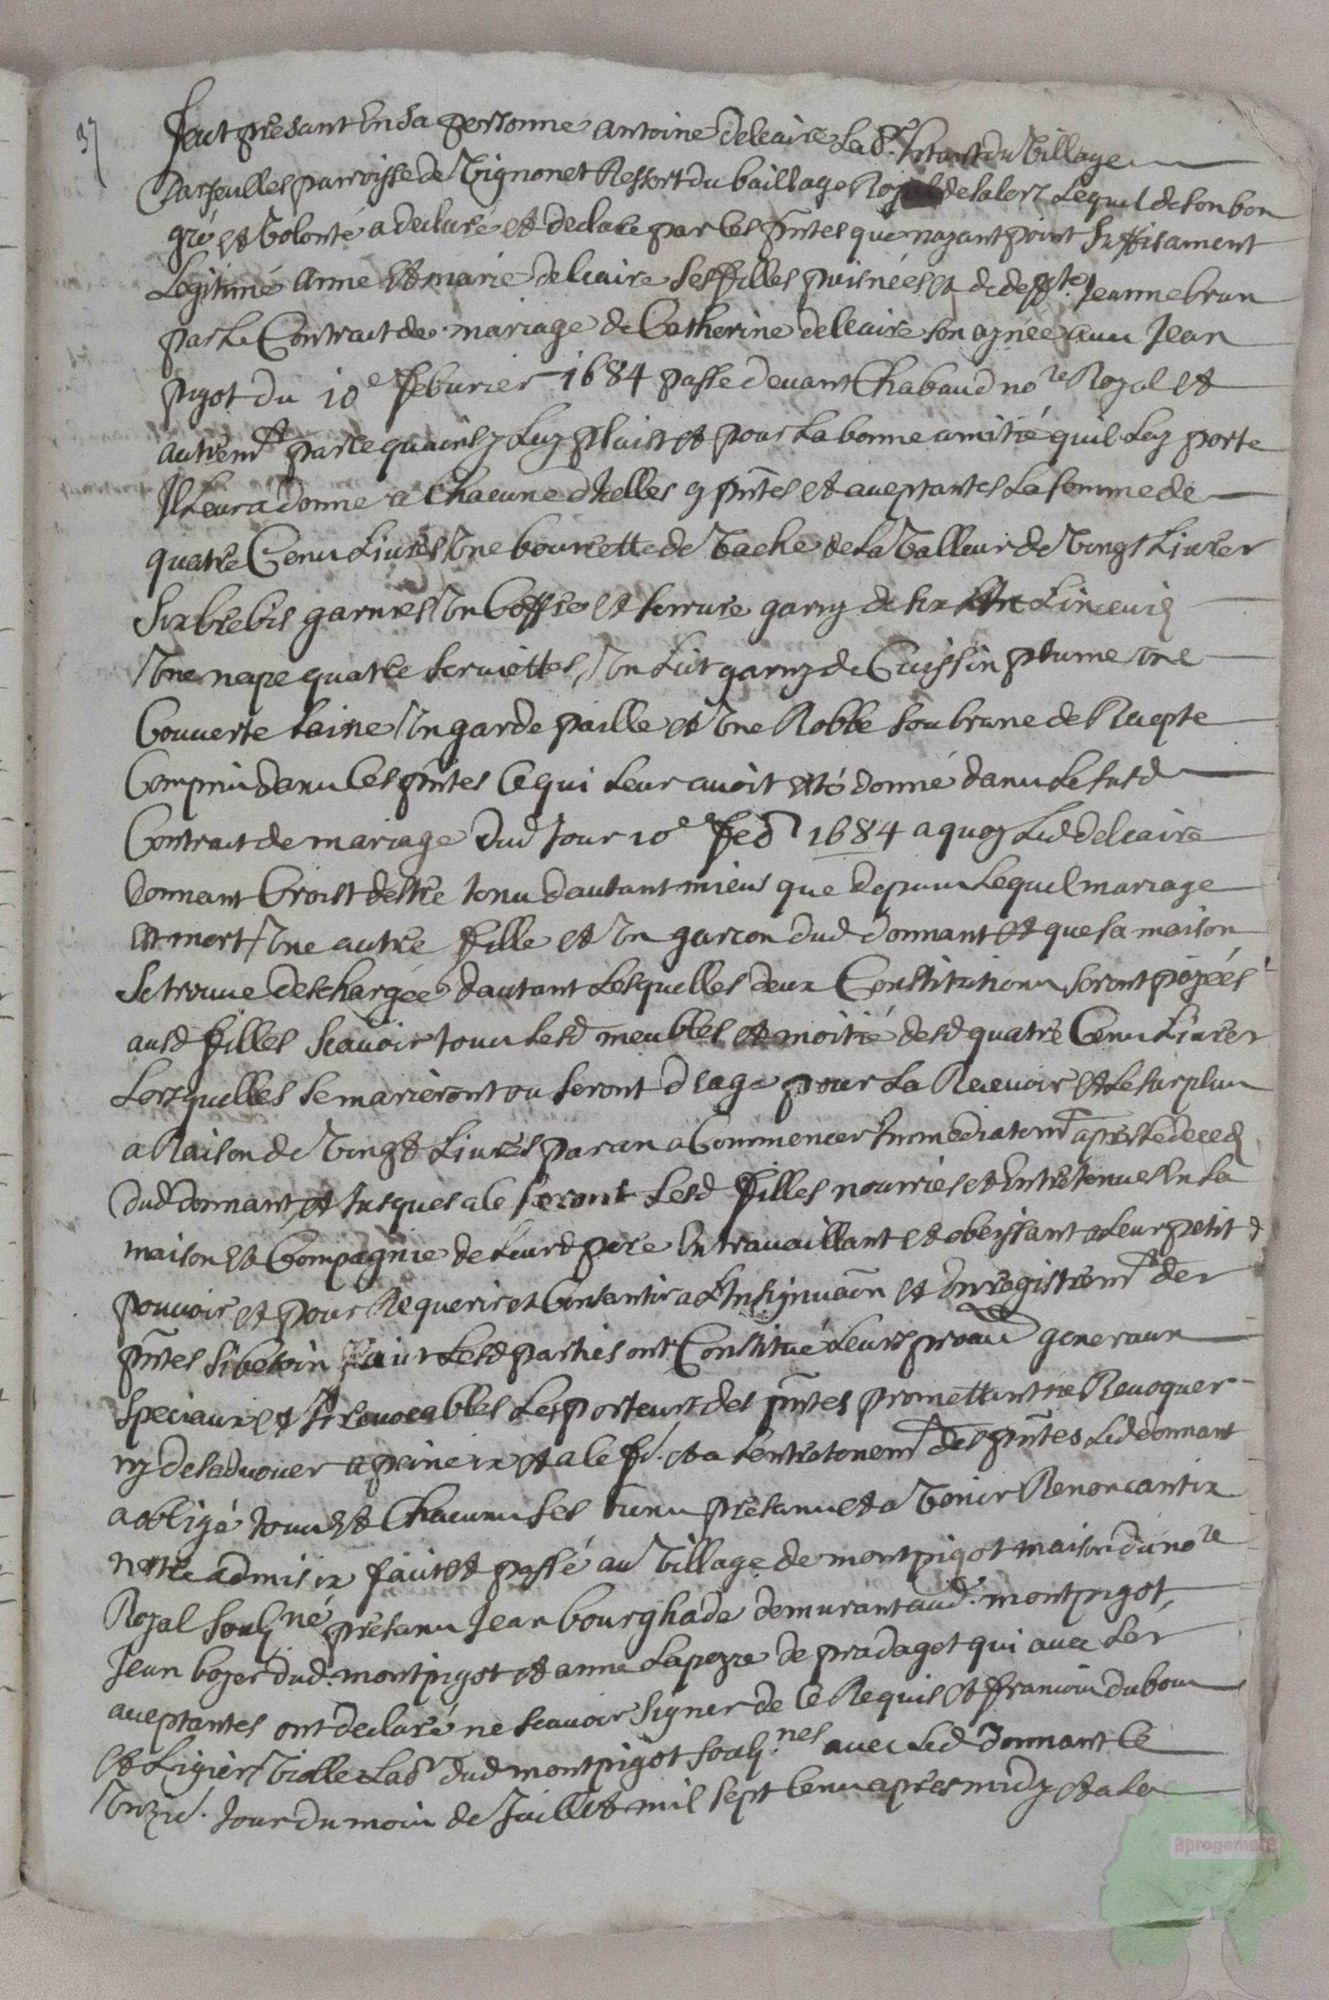 37
Feut presant en sa personne antoine delcaire Lab.r hitant du village
Darfeulles parroisse de Vignonet Ressort du baillage Royal de salers Lequel de son bon
gré et volonté a declaré et declare par les pntes que nayant point suffisament
Legitimé anne et marie delcaire ses filles puisnées et de deffte Jeanne brun
par le Contrait de mariage de Catherine delcaire son aynée avec Jean
pigot du 10e feburier 1684 passe devant Chabaud nore Royal et
autremt parce quainsy Luy plaist et pour La bonne amitié quil Luy porte
Il leur a donne a Chacune dicelles y pntes et aceptantes La somme de
quatre Cens Livres Une bourette de Vache de La Valleur de Vingt Livres
Six brebis garnies Un Coffre et serrure garny de six Linceuls
Une nape quatre serviettes Un Lict garny de Cuissin plume une
Couverte laine Un garde paille et Une Robbe soubrune de
Comprins dans les pntes Ce qui Leur avoit esté donné dans Le susd
Contrait de mariage dud Jour 10e feb 1684 a quoy Led delcaire
donnant Croist destre tenu dautant mieus que depuis Lequel mariage
est mort Une autre fille et Un garcon dud donnant et que sa maison
se treuve deschargée dautant Lesquelles deux Constitutions seront payées
ausd filles scavoir tous Lesd meubles et moitié desd quatre Cens Livres
Lorsquelles se marieront ou seront deage pour La Recevoir et Le surplus
a Raison de Vingt Livres par an a Commencer Immediatemt apres Le deced
dud donnant et Jusques a ce seront Lesd filles nourries et Entretenues En La
maison et Compagnie de Leurd pere En travaillant et obeyssant a Leur petit
pouvoir et pour Requerir et Consantir a L'Insignuaon et Enregistremt des
pntes si besoin Lesd parties ont Constitué Leurs generaux
speciaux et Irrevocables Les porteurs des pntes promettant ne Revoquer
ny desadvouer a peine ix et a ce f. et a Lentretenemt des pntes Led donnant
a obligé tous et Chacuns ses biens presans et a Venir Renoncant ix
nestre admis ix fait et passé au Village de montpigot maison du nore
Royal soubsné presans Jean bourghade demurant aud. montpigot,
Jean boyer dud. montpigot et anne Lapeyre de pradagot qui avec Les
aceptantes ont declaré ne scavoir signer de ce Requis et francois dubois
et Ligier Violle Labr dud montpigot soubs.nes avec Led donnant Ce
Jour du mois de Juillet mil sept Cens apres midy et a Le
aprogemere